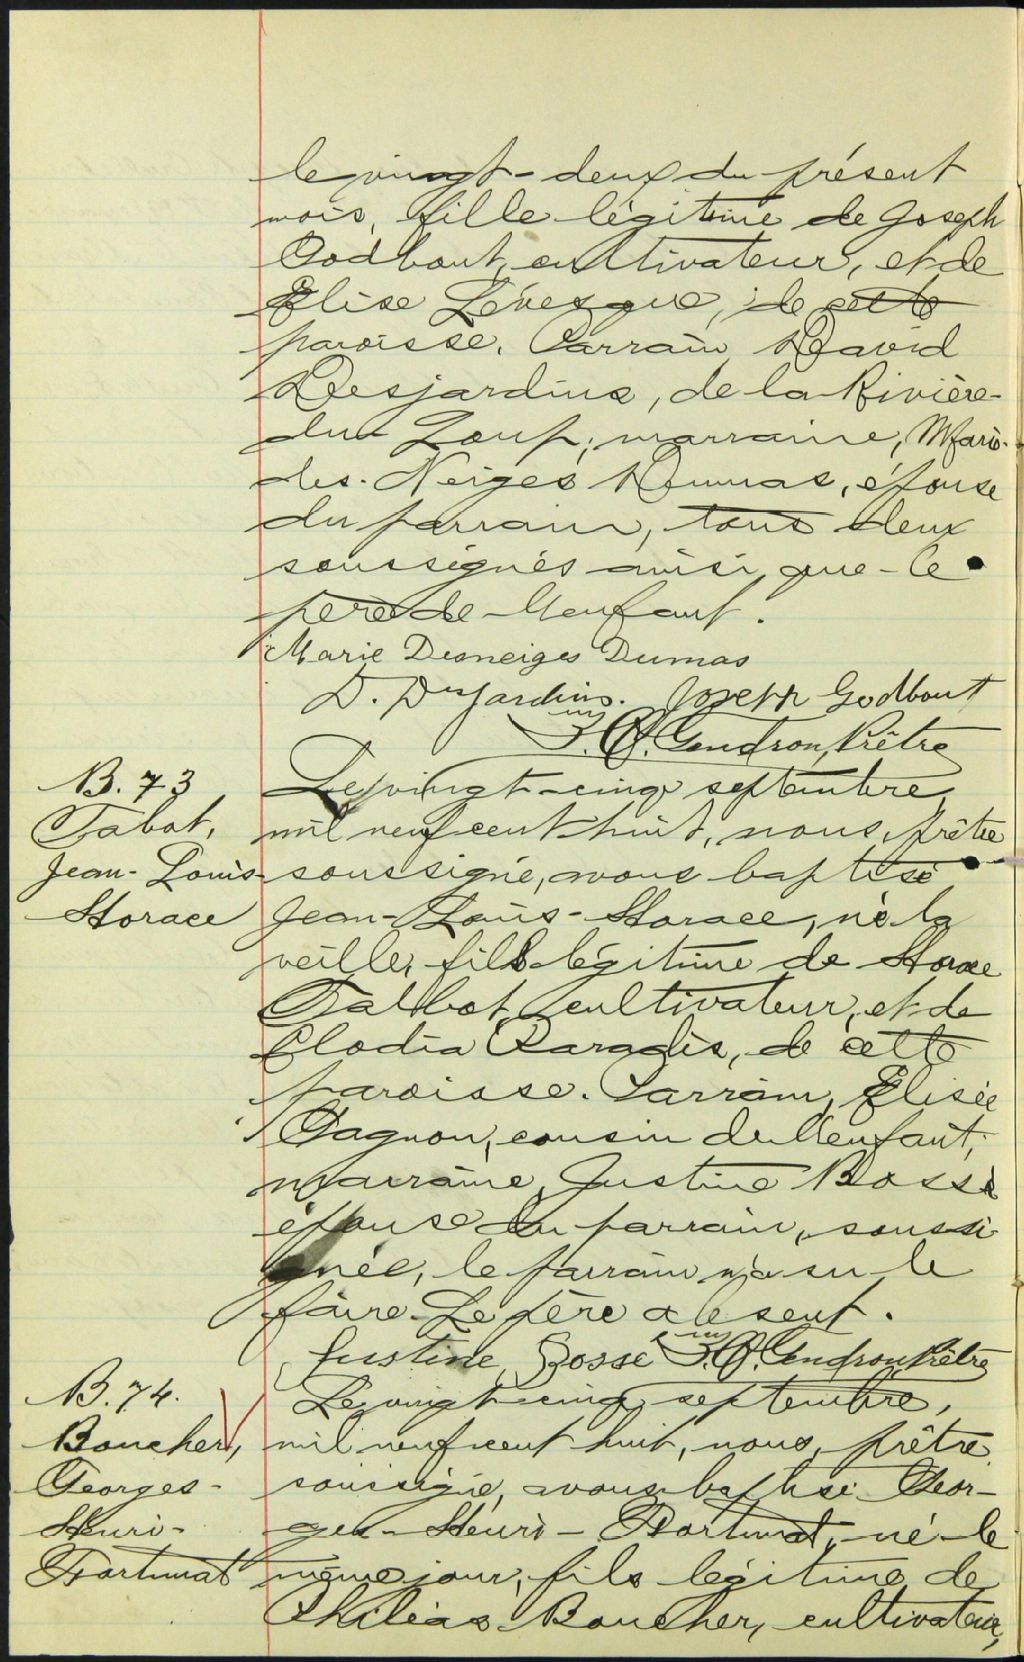 le vingt-deux du présent
mois, fille légitime de Joseph
Godbout, cultivateur, et de
Elise Lévesque, de cette
paroisse. Parrain, David
Desjardins, de la Rivière-
du-Loup; marraine, Marie-
des-Neiges Dumas, épouse
du parrain, tous deux
soussignés ainsi que le
père de l'enfant.
Marie Desneiges Dumas
D. Desjardins. Joseph Godbout
Gendron, Prêtre
B. 73
Talbot,
Jean-Louis-
Horace
Le vingt-cinq septembre,
mil neuf cent huit, nous, prêtre
soussigné, avons baptisé
Jean-Louis-Horace, né la
veille, fils légitime de Horace
Talbot, cultivateur, et de
Clodia Paradis, de cette
paroisse. Parrain, Elisée
Gagnon, cousin de l'enfant;
marraine, Justine Bossé
épouse du parrain, soussi-
gnée, le parrain n'a su le
faire. Le père absent.
Justine Bossé Gendron, Prêtre
B. 74.
Boucher,
Georges-
Henri-
Fortunat
Le vingt-cinq septembre,
mil neuf cent huit, nous, prêtre
soussigné, avons baptisé Geor-
ges-Henri-Fortunat, né le
même jour, fils légitime de
Philéas Boucher, cultivateur,